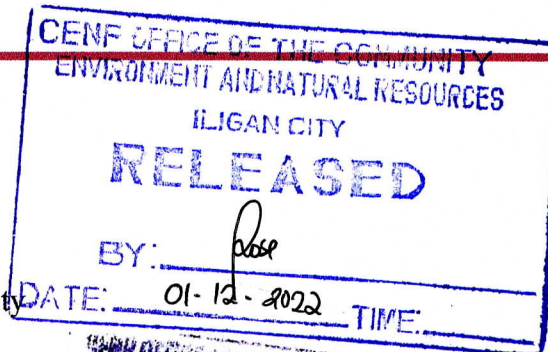 CENF OFFICE OF THE COMMUNITY
ENVIRONMENT AND NATURAL RESOURCES
ILIGAN CITY
RELEASED
BY: Rose
ty DATE: 01-12-2022 TIME: